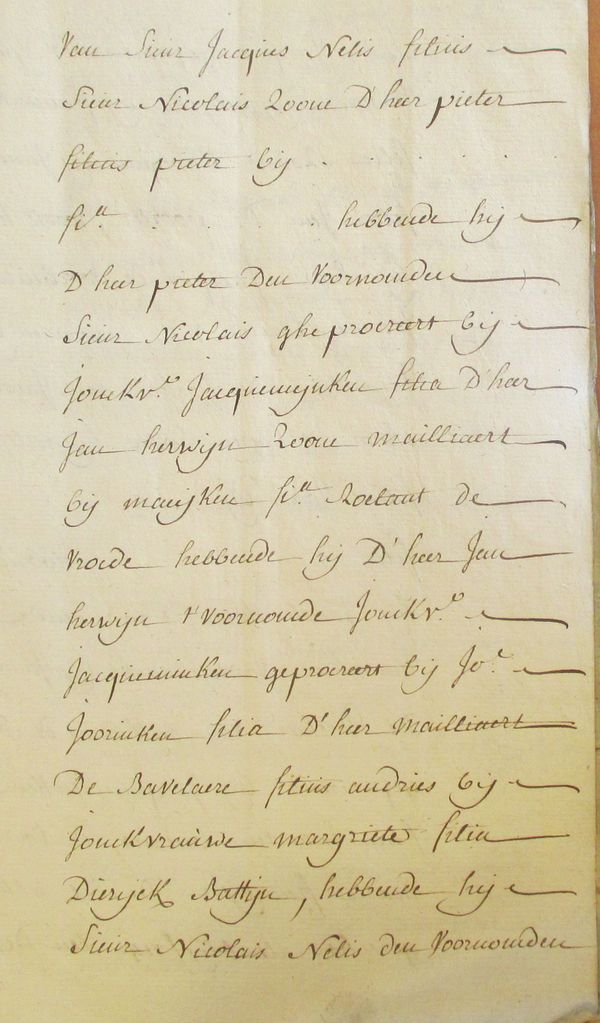 Van Sieur Jacques Nelis filius
Sieur Nicolais Zoone D'heer pieter
filius pieter bij . . . . .
fi.a . . . . hebbende hij
D'heer pieter Den Voornomden
Sieur Nicolais gheprocreert bij
JonckVr.e Jacquemijnken filia D'heer
Jan herwijn Zoone mailliaert
bij maeijken fi.a Roelant de
Vroede hebbende hij D'heer Jan
herwijn t'Voornomde JonckVr.e
Jacqueminken geprocreert bij Jo.e
Joorinken filia D'heer Mailliaert
De Bavelaere filius andries bij
JonckVrauwe margriete filia
Dierijck Battijn, hebbende hij
Sieur Nicolais Nelis den Voornomden